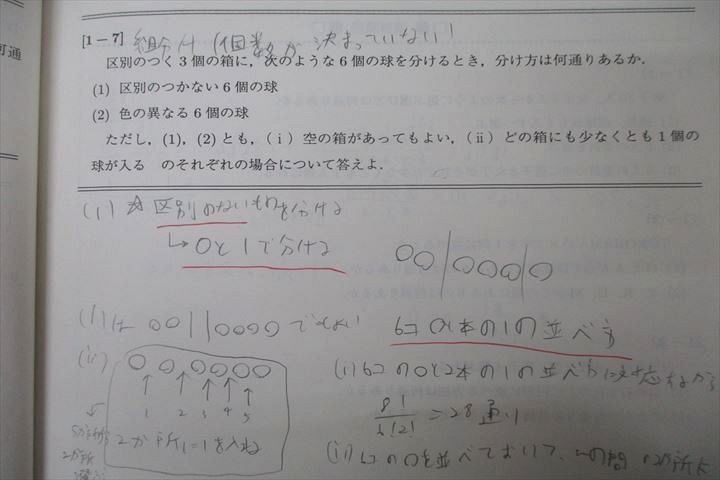 何通
[1-7] 組分け (個数が決まっていない!
区別のつく3個の箱に，次のような6個の球を分けるとき，分け方は何通りあるか．
(1) 区別のつかない6個の球
(2) 色の異なる6個の球
ただし，(1)，(2)とも，(ⅰ)空の箱があってもよい，(ⅱ)どの箱にも少なくとも1個の
球が入る のそれぞれの場合について答えよ．
(1) ☆区別のないものを分ける
↳ 0と1で分ける
○○|○○○○|○
(i)は ○○||○○○○ でもよい
6コ 0と 本の1の並べ方
(ii) ○ ○ ○ ○ ○ ○
↑ ↑ ↑ ↑ ↑
1 2 3 4 5
2か所に1を入れ
5か所
2か所
(i) 6コの0と2本の1の並べ方に対応するから
8!/6!2! = 28通り
(ii) 6コの0を並べておいて、 の間 の2か所に